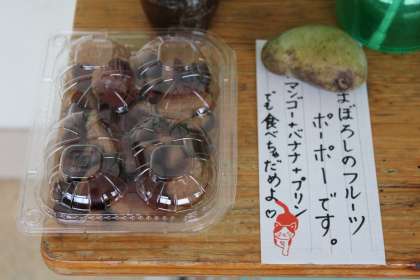 まぼろしのフルーツ
ポーポーです。
マンゴー+バナナ+プリン
でも食べちゃだめよ♡